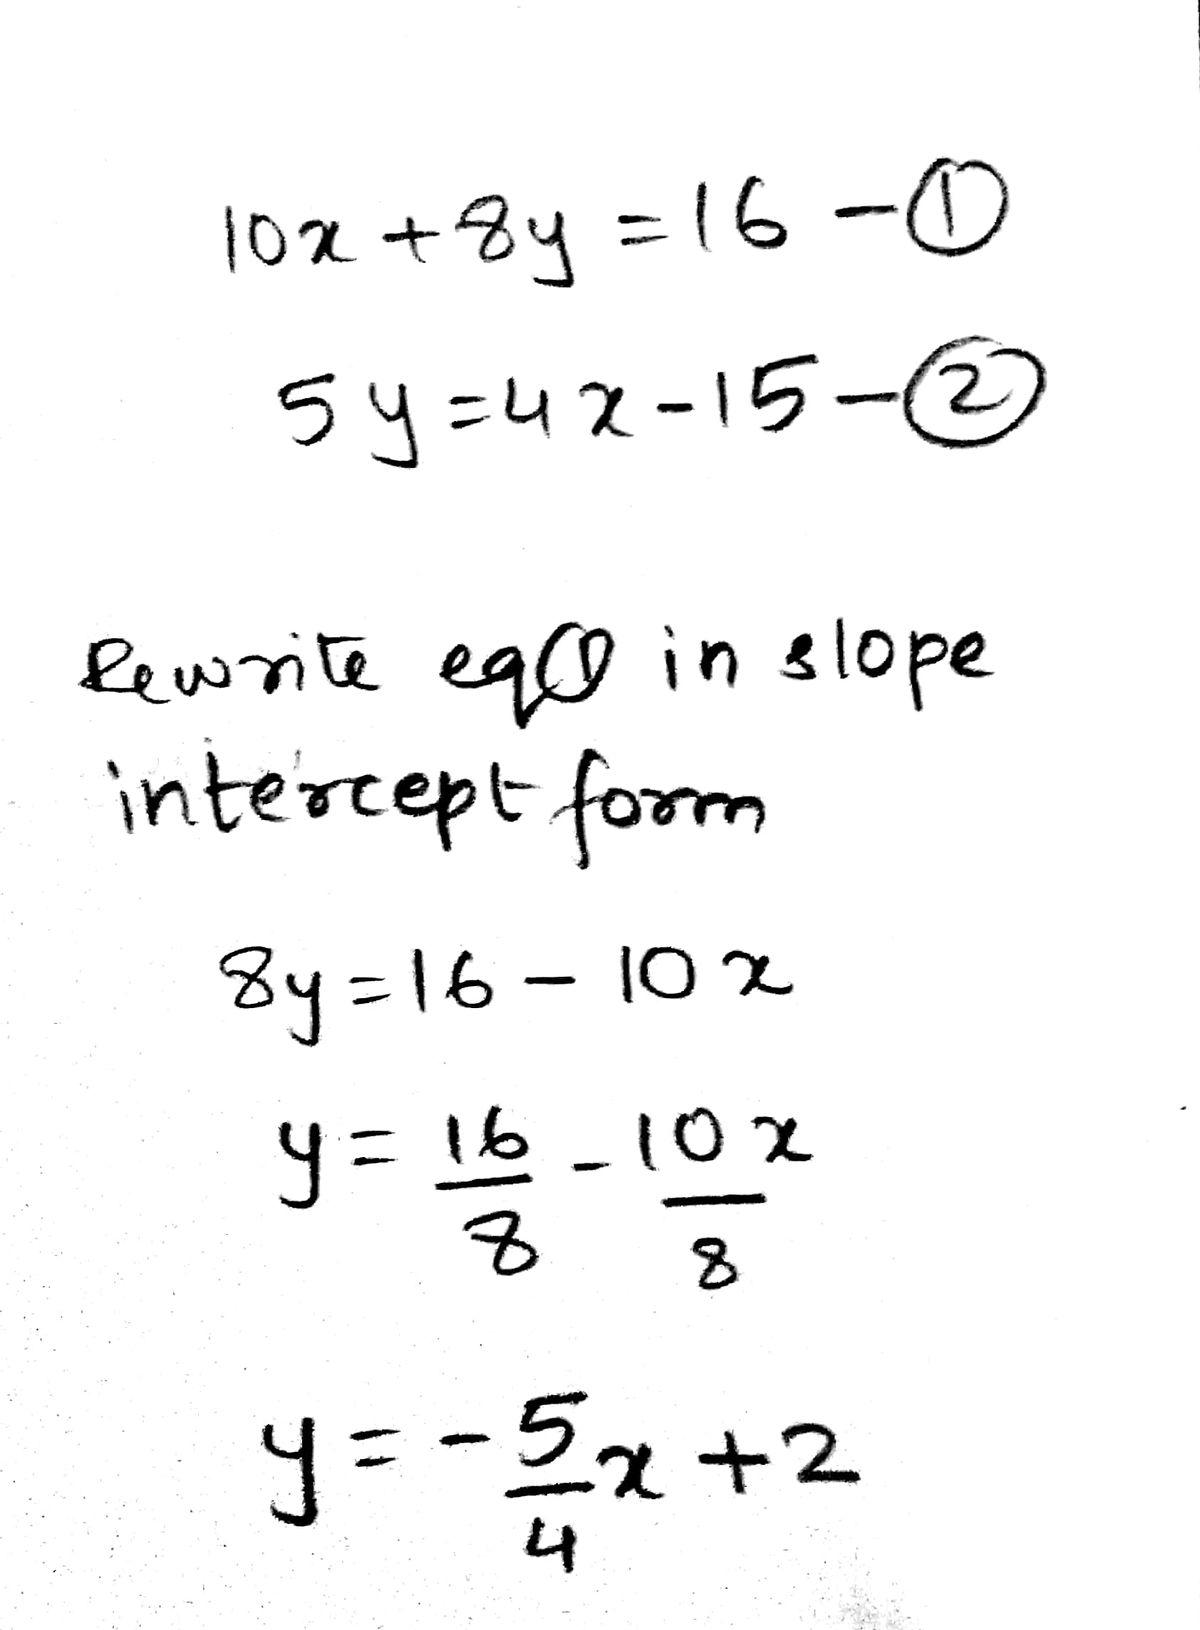 10x + 8y = 16 - ①
5y = 4x - 15 - ②
Rewrite eq① in slope
intercept form
8y = 16 - 10x
y = 16/8 - 10x/8
y = -5/4 x + 2